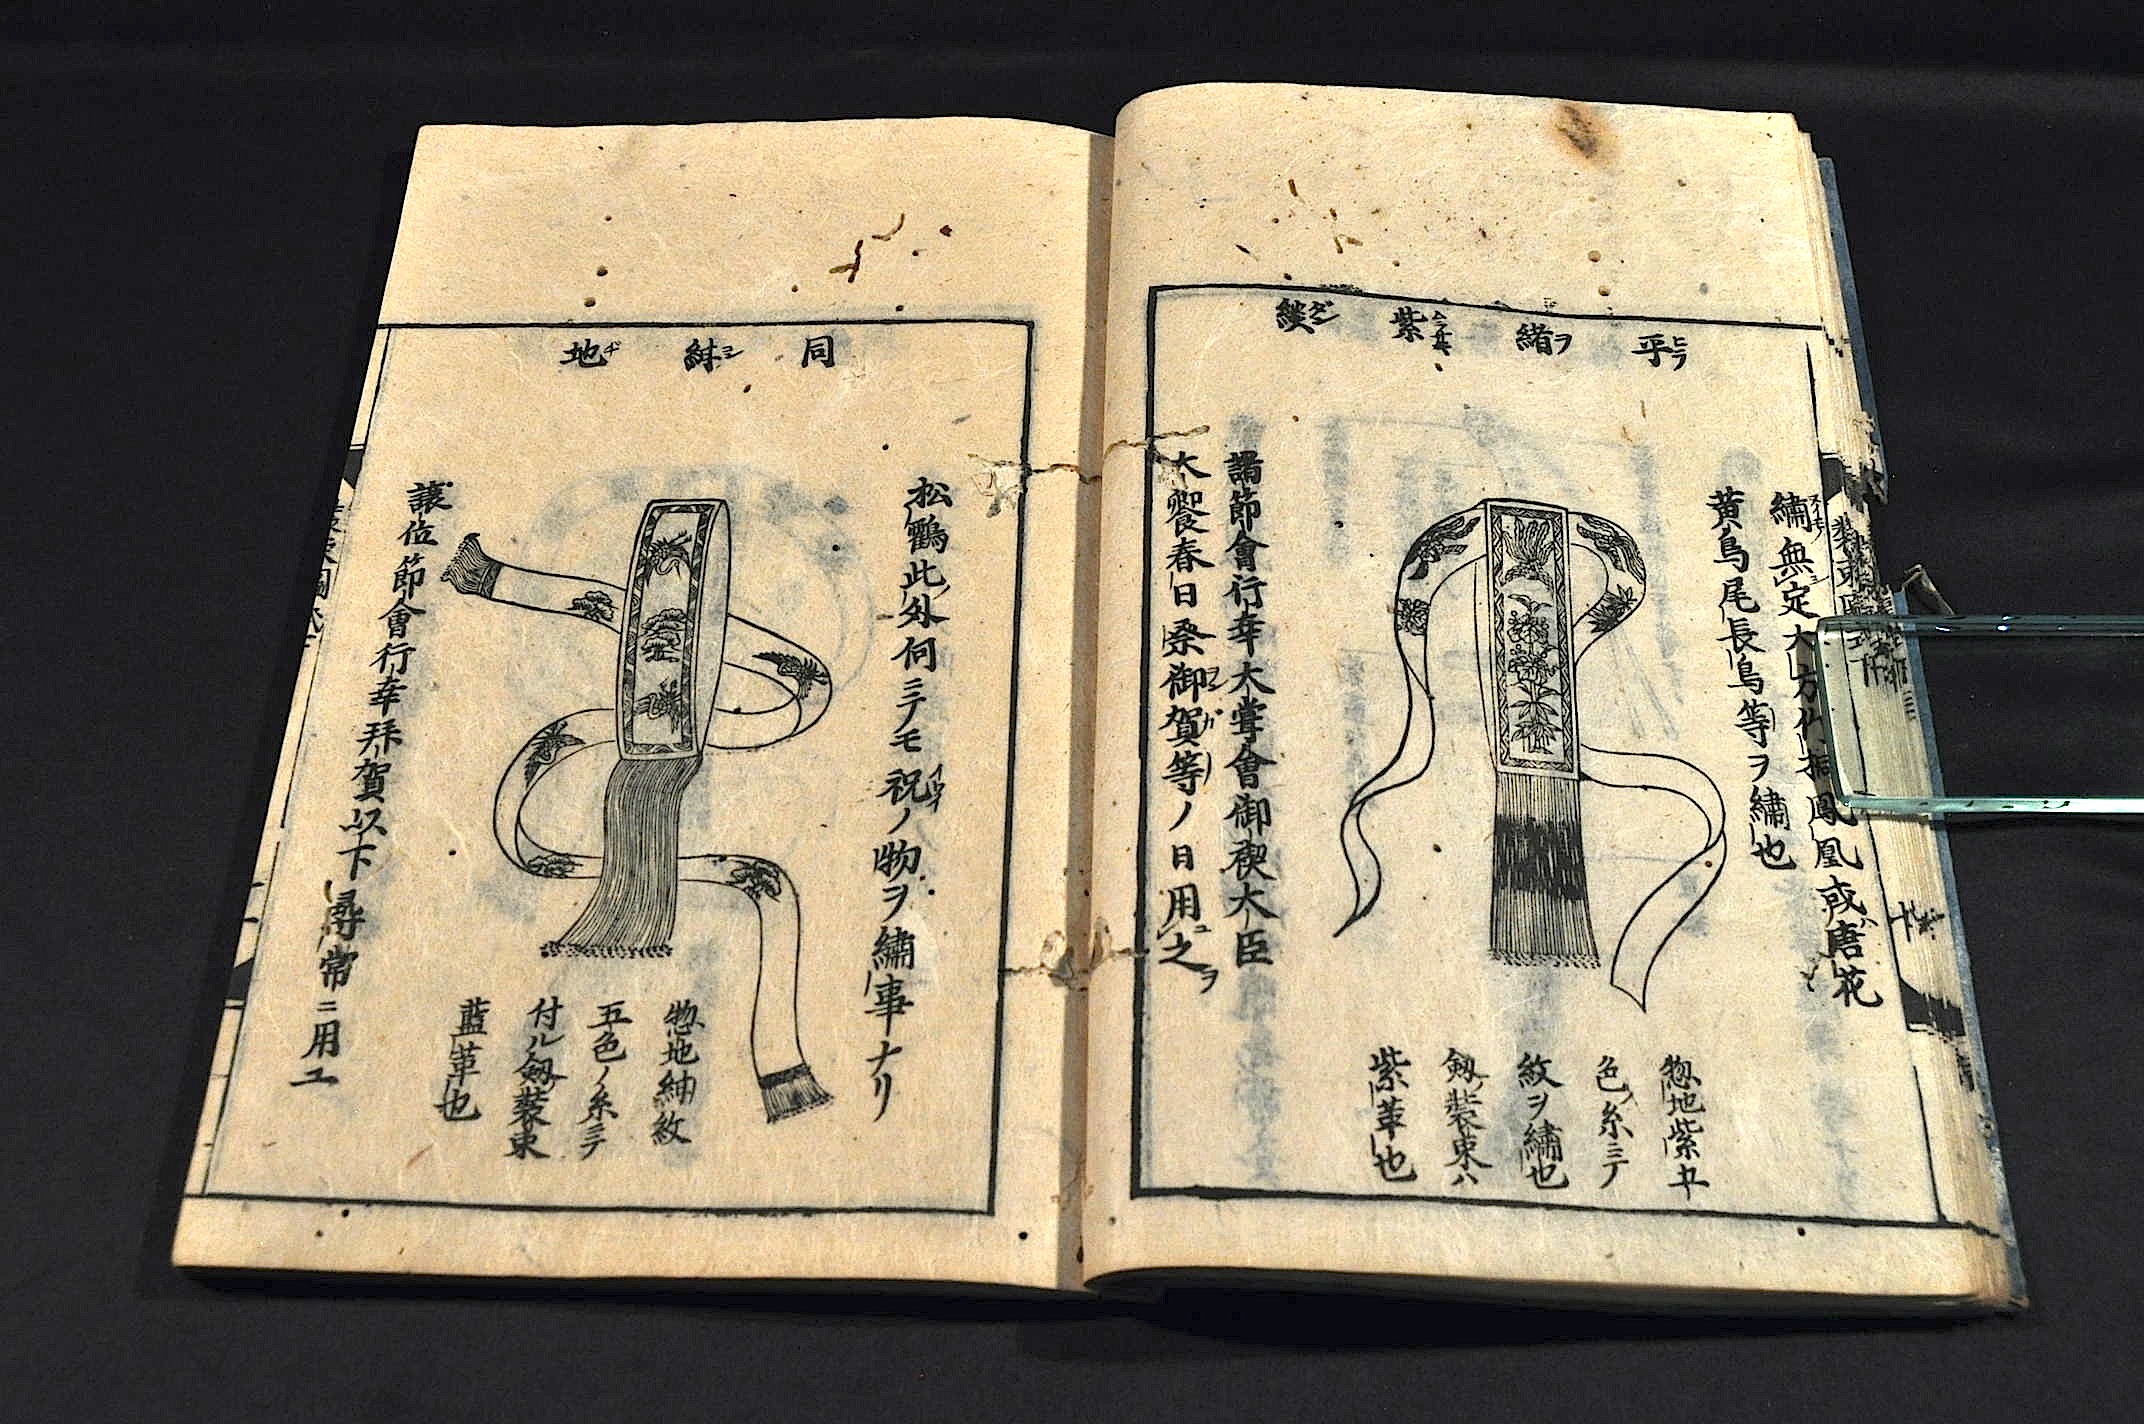 平緒紫緂
ヒラ ヲ ムラサキ ダン
繍無定大方
鳳凰或唐花
黄鳥尾長鳥等ヲ繍也
惣地紫五
色ノ糸ニテ
紋ヲ繍也
劔装束ハ
紫革也
節會行幸大甞會御禊大臣
大饗春日祭御賀等ノ日用之
同紺地
松鶴此外何ニテモ祝ノ物ヲ繍事ナリ
惣地紺紋
五色ノ糸ニテ
付ル劔装束
藍革也
譲位節會行幸拝賀以下尋常ニ用ユ